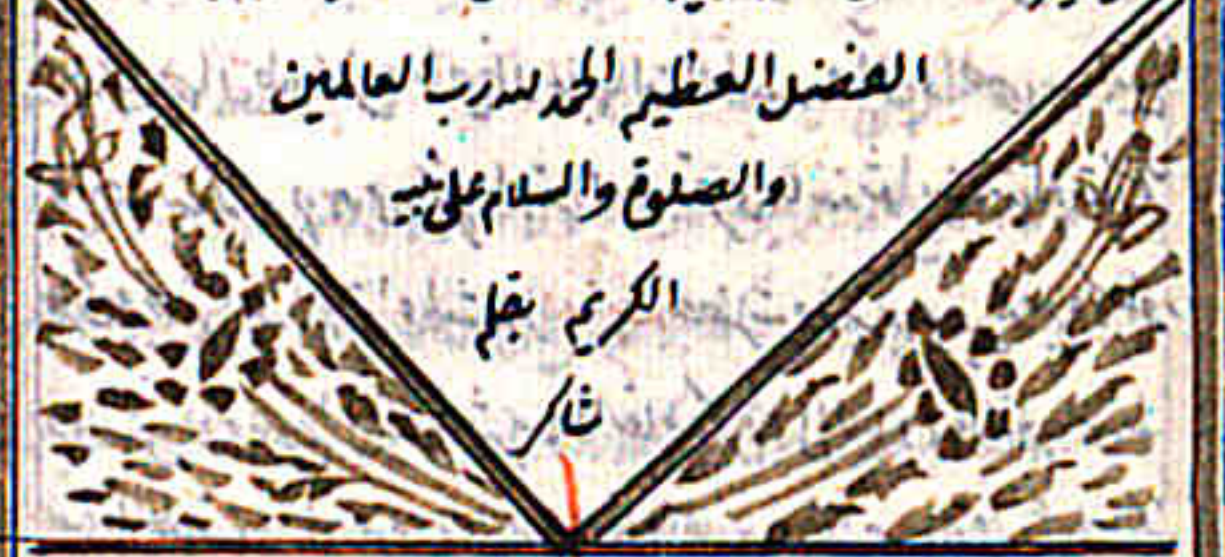 الفضل العظيم الحمد لله رب العالمين
والصلوة والسلام على نبيه
الكريم بقلم
شاكر